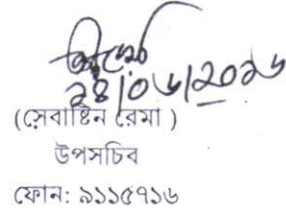 ২৪/০৬/২০১৬
(সেবাষ্টিন রেমা )
উপসচিব
ফোন: ৯১১৫৭১৬